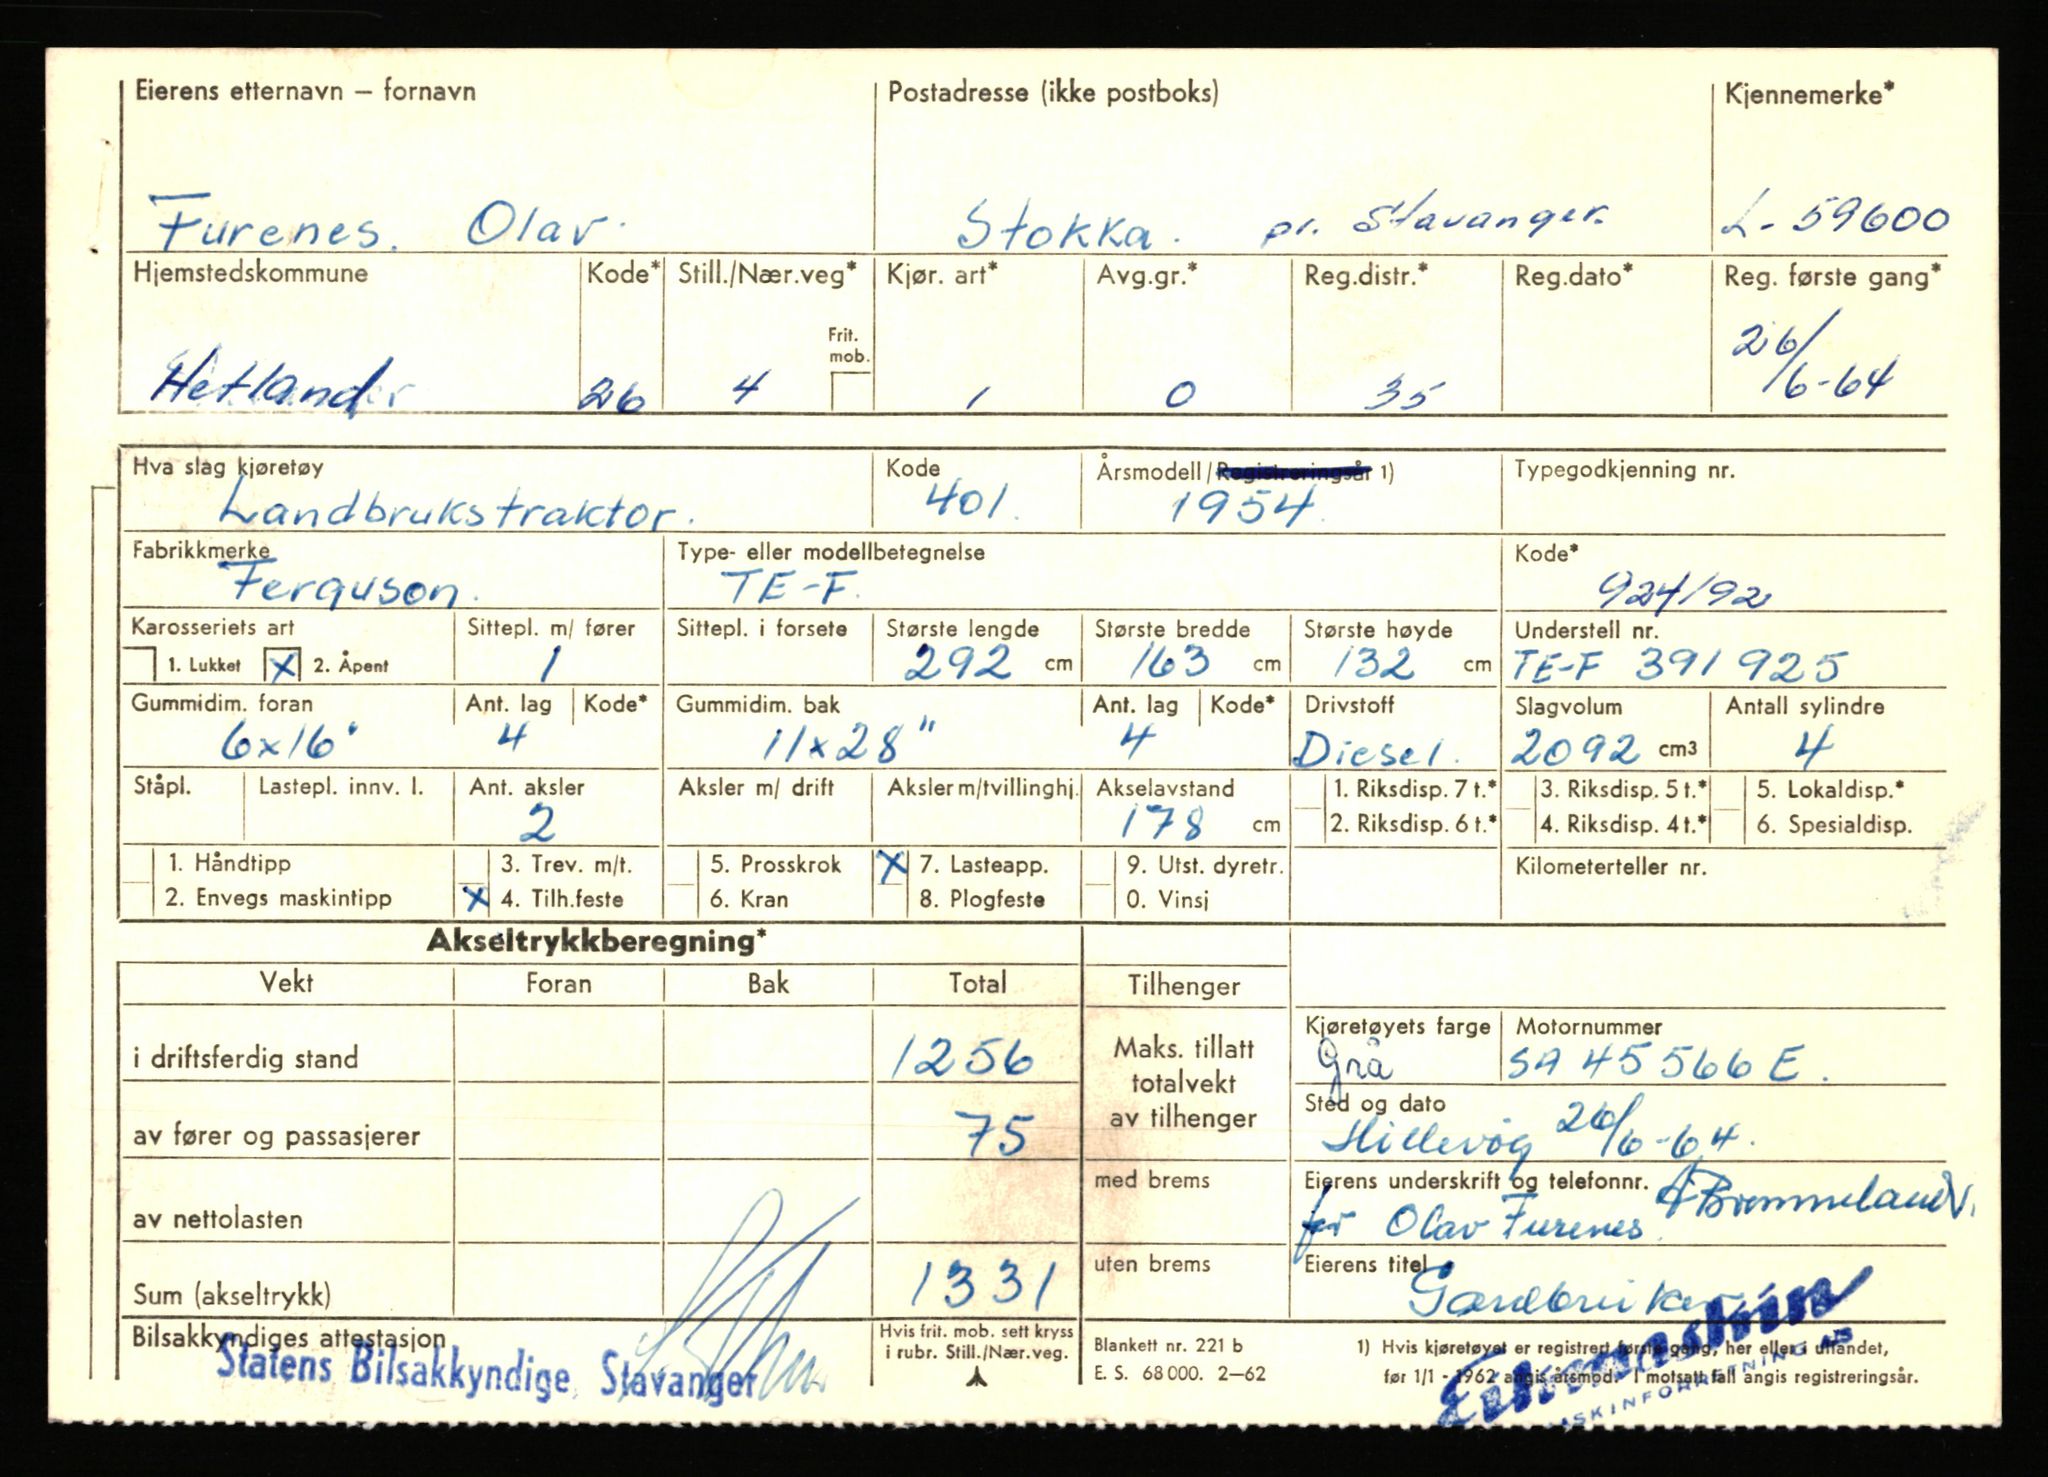 Eierens etternavn – fornavn Postadresse (ikke postboks) Kjennemerke*
Furenes. Olav. Stokka. pr. Stavanger. L-59600
Hjemstedskommune Kode* Still./Nær.veg* Kjør. art* Avg.gr.* Reg.distr.* Reg.dato* Reg. første gang*
Frit. mob.
Hetland 26 4 1 0 35 26/6-64
Hva slag kjøretøy Kode Årsmodell/Registreringsår 1) Typegodkjenning nr.
Landbrukstraktor. 401. 1954.
Fabrikkmerke Type- eller modellbetegnelse Kode*
Ferguson. TE-F. 924/92
Karosseriets art Sittepl. m/ fører Sittepl. i forsete Største lengde Største bredde Største høyde Understell nr.
1. Lukket X 2. Åpent 1 292 cm 163 cm 132 cm TE-F 391925
Gummidim. foran Ant. lag Kode* Gummidim. bak Ant. lag Kode* Drivstoff Slagvolum Antall sylindre
6x16" 4 11x28" 4 Diesel. 2092 cm3 4
Ståpl. Lastepl. innv. l. Ant. aksler Aksler m/ drift Aksler m/tvillinghj. Akselavstand 1. Riksdisp. 7 t.* 3. Riksdisp. 5 t.* 5. Lokaldisp.*
2 178 cm 2. Riksdisp. 6 t.* 4. Riksdisp. 4 t.* 6. Spesialdisp.
1. Håndtipp 3. Trev. m/t. 5. Prosskrok X 7. Lasteapp. 9. Utst. dyretr. Kilometerteller nr.
2. Envegs maskintipp X 4. Tilh.feste 6. Kran 8. Plogfeste 0. Vinsj
Akseltrykkberegning*
Vekt Foran Bak Total Tilhenger
Kjøretøyets farge Motornummer
i driftsferdig stand 1256 Maks. tillatt Grå SA 45566 E.
totalvekt
Sted og dato
av fører og passasjerer 75 av tilhenger Hillevåg 26/6-64.
med brems Eierens underskrift og telefonnr. A Brommeland.
av nettolasten for Olav Furenes.
uten brems Eierens titel
Sum (akseltrykk) 1331 Gardbruker
Bilsakkyndiges attestasjon Hvis frit. mob. sett kryss Blankett nr. 221 b 1) Hvis kjøretøyet er registrert første gang, her eller i utlandet,
Statens Bilsakkyndige, Stavanger i rubr. Still./Nær.veg. E. S. 68 000. 2–62 før 1/1 - 1962 angis årsmod. I motsatt fall angis registreringsår.
MASKINFORRETNING A/S